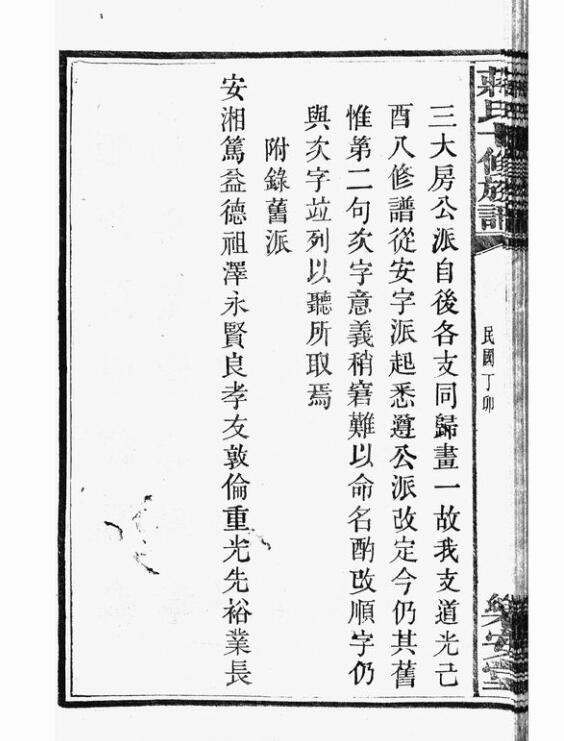 蔣氏十修族譜
民國丁卯
樂安堂
三大房公派自後各支同歸畫一故我支道光己
酉八修譜從安字派起悉遵公派改定今仍其舊
惟第二句次字意義稍窘難以命名酌改順字仍
與次字竝列以聽所取焉
附錄舊派
安湘篤益德祖澤永賢良孝友敦倫重光先裕業長